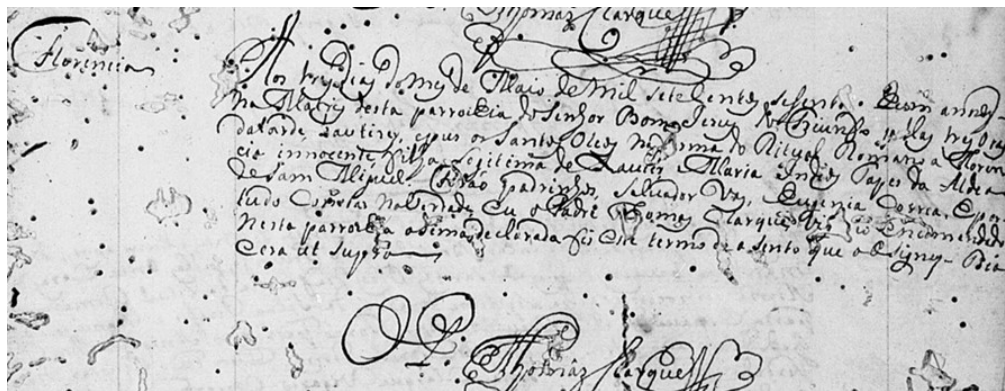 Thomaz Clarque
Florencia
Aos trez dias do mez de Maio de mil sete centos sesenta e hum annos
na Matriz desta parroicia do Senhor Bom Jezus do Triunfo pellas trez oras
da tarde bautizei, e pus os Santos Oleos na forma do Ritual Romano a Floren
cia innocente, filha legitima de Xavier e Maria Indios Tapes da Aldea
de Sam Miguel. Forão padrinhos, Salvador Vas, Eugenia Correa, E por
tudo Constar na verdade, Eu o Padre Thomas Clarque, Encomendado
Nesta parroicia asima declarada fis este termo de asento que asigney
Era ut supra
Thomaz Clarque